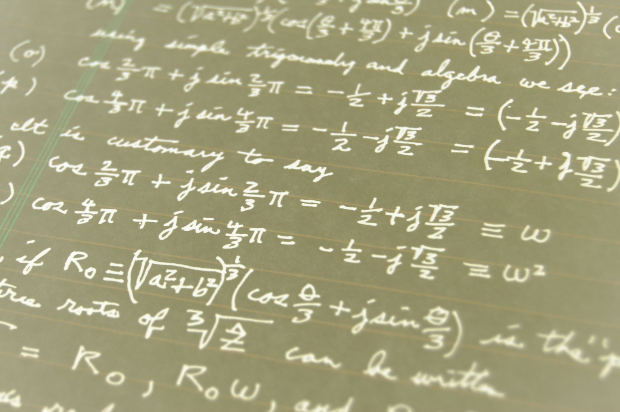 (n) = (√a²+b²)^⅓ (cos(θ/3 + 4π/3) + j sin(θ/3 + 4π/3)) (m) = (√a²+b²)^⅓ (
using simple trigonometry and algebra we see:
(o) cos 2/3 π + j sin 2/3 π = -1/2 + j √3/2 = (-1/2 - j √3/2)
(p) cos 4/3 π + j sin 4/3 π = -1/2 - j √3/2 = (-1/2 + j √3/2)
it is customary to say
q) cos 2/3 π + j sin 2/3 π = -1/2 + j √3/2 ≡ ω
) cos 4/3 π + j sin 4/3 π = -1/2 - j √3/2 ≡ ω²
if R₀ ≡ (√a²+b²)^⅓ (cos θ/3 + j sin θ/3) is the "p
roots of ∛z can be written
= R₀, R₀ω, and